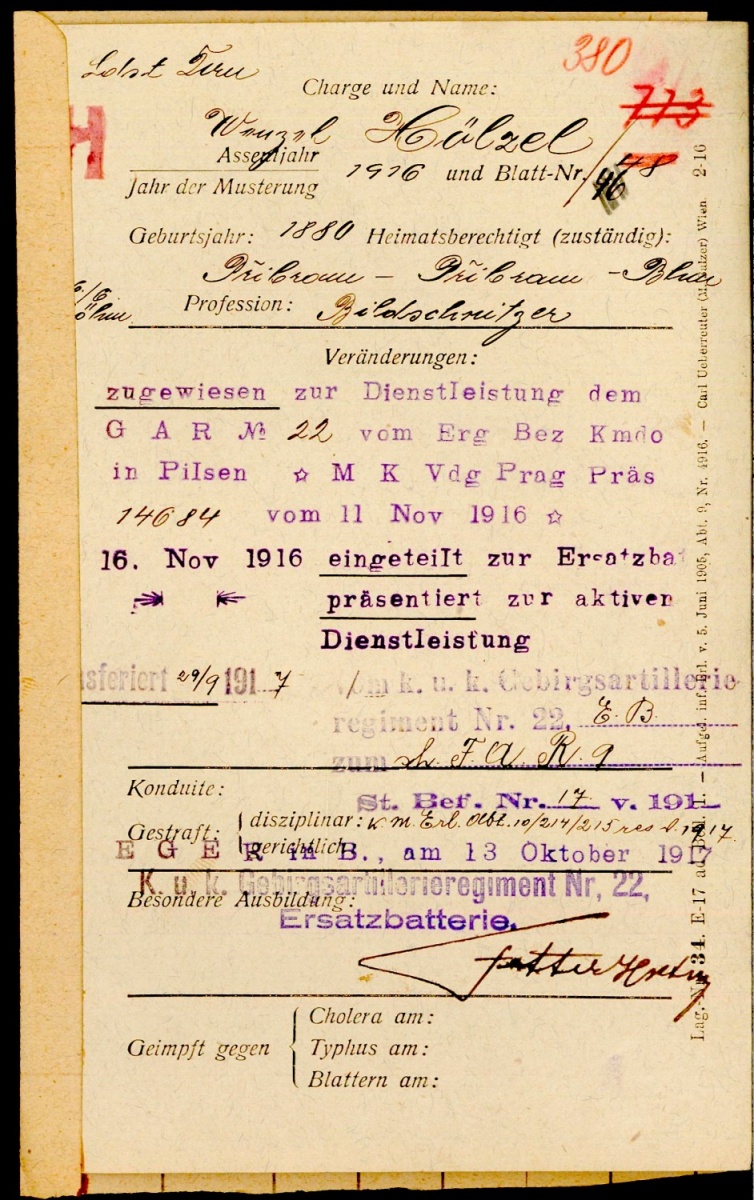 380
Ldst
Charge und Name:
773
H
Wenzel Hölzel
Assentjahr
Jahr der Musterung 1916 und Blatt-Nr. 46 78
Geburtsjahr: 1880 Heimatsberechtigt (zuständig):
Přibram – Přibram – Böhm
Profession: Bildschnitzer
Veränderungen:
zugewiesen zur Dienstleistung dem
G A R № 22 vom Erg Bez Kmdo
in Pilsen ☆ M K Vdg Prag Präs
14684 vom 11 Nov 1916 ☆
16. Nov 1916 eingeteilt zur Ersatzba
präsentiert zur aktiven
Dienstleistung
nsferiert 29/9 1917 vom k. u. k. Gebirgsartillerie-
regiment Nr. 22, E. B.
zum s. F. A. R. 9
Konduite:
St. Bef. Nr. 17 v. 191
Gestraft: disziplinar: K. M. Erl. Abt. 10/214/215 res v. 1917.
gerichtlich
EGER in B., am 13 Oktober 1917
K. u. k. Gebirgsartillerieregiment Nr, 22,
Besondere Ausbildung:
Ersatzbatterie.
Geimpft gegen
Cholera am:
Typhus am:
Blattern am:
Lag.-Nr. 34. E-17 — Aufgel. inf. Erl. v. 5. Juni 1905, Abt. 9, Nr. 4916. — Carl Ueberreuter (M. Salzer) Wien. 2-16